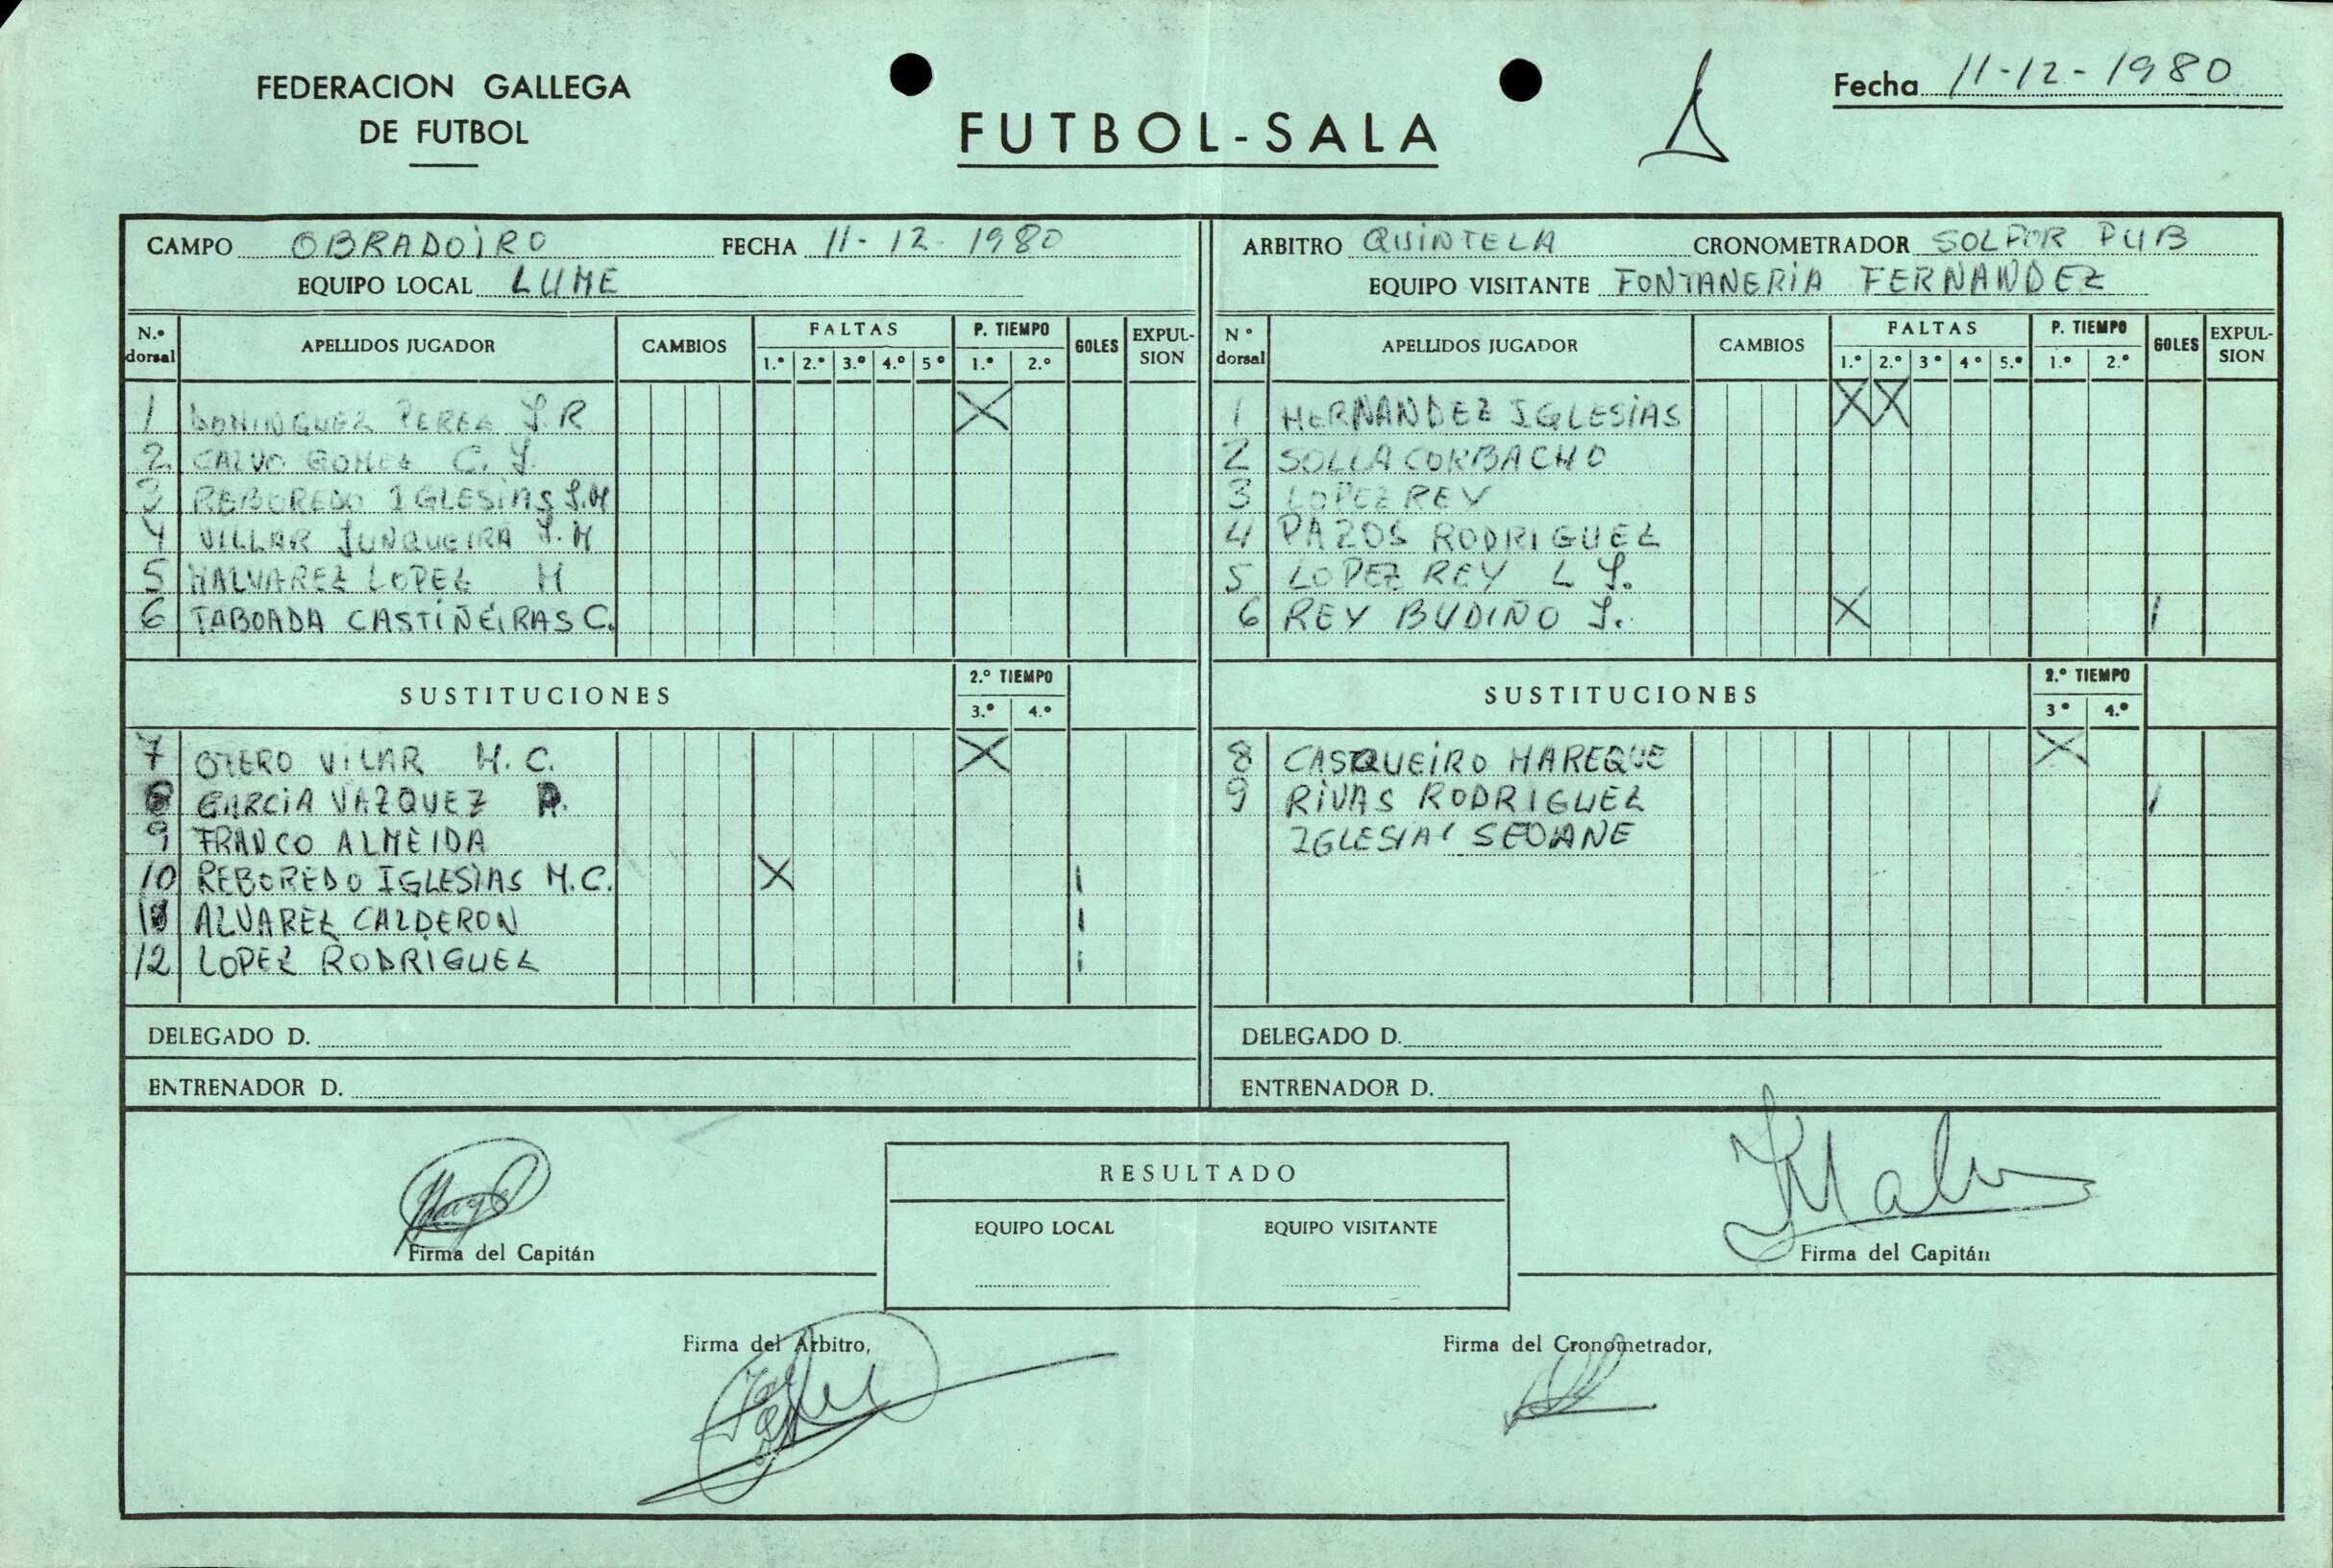 FEDERACION GALLEGA
DE FUTBOL
FUTBOL-SALA
Fecha 11-12-1980
CAMPO OBRADOIRO FECHA 11-12-1980
EQUIPO LOCAL LUME
N.º dorsal APELLIDOS JUGADOR CAMBIOS FALTAS 1.º 2.º 3.º 4.º 5º P. TIEMPO 1.º 2.º GOLES EXPULSION
1 DOMINGUEZ PEREZ J.R X
2 CALVO GOMEZ C. J.
3 REBOREDO IGLESIAS J.M
4 VILLAR JUNQUEIRA J.M
5 MALVAREZ LOPEZ M
6 TABOADA CASTIÑEIRAS C.
SUSTITUCIONES 2.º TIEMPO 3.º 4.º
7 OTERO VILAR M. C. X
8 GARCIA VAZQUEZ P.
9 FRANCO ALMEIDA
10 REBOREDO IGLESIAS M.C. X I
11 ALVAREZ CALDERON I
12 LOPEZ RODRIGUEZ I
DELEGADO D.
ENTRENADOR D.
ARBITRO QUINTELA CRONOMETRADOR SOLPOR PUB
EQUIPO VISITANTE FONTANERIA FERNANDEZ
Nº dorsal APELLIDOS JUGADOR CAMBIOS FALTAS 1.º 2.º 3º 4º 5.º P. TIEMPO 1.º 2.º GOLES EXPULSION
1 HERNANDEZ IGLESIAS X X
2 SOLLA CORBACHO
3 LOPEZ REY
4 PAZOS RODRIGUEZ
5 LOPEZ REY L J.
6 REY BUDIÑO J. X I
SUSTITUCIONES 2.º TIEMPO 3º 4.º
8 CASQUEIRO MAREQUE X
9 RIVAS RODRIGUEZ I
IGLESIAS SEOANE
DELEGADO D.
ENTRENADOR D.
RESULTADO
EQUIPO LOCAL EQUIPO VISITANTE
Firma del Capitán
Firma del Capitán
Firma del Arbitro,
Firma del Cronometrador,